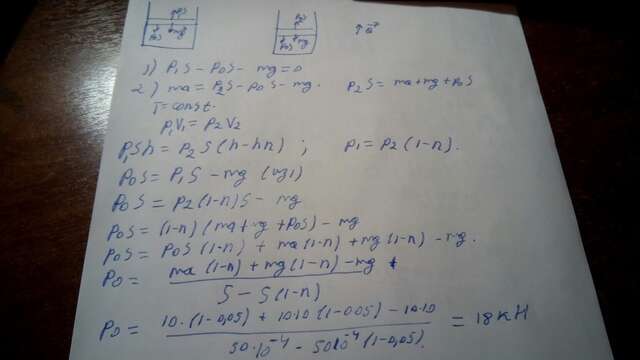 P₀S
P₀S mg
P₀S
P₀S mg
↑a⃗
1) P₁S - P₀S - mg = 0
2) ma = P₂S - P₀S - mg. P₂S = ma + mg + P₀S
T = const.
P₁V₁ = P₂V₂
P₁Sh = P₂S(h - hn) ; P₁ = P₂(1-n).
P₀S = P₁S - mg (из 1)
P₀S = P₂(1-n)S - mg
P₀S = (1-n)(ma + mg + P₀S) - mg
P₀S = P₀S(1-n) + ma(1-n) + mg(1-n) - mg.
P₀ = (ma(1-n) + mg(1-n) - mg) / (S - S(1-n))
P₀ = (10·(1-0,05) + 10·10(1-0,05) - 10·10) / (50·10⁻⁴ - 50·10⁻⁴(1-0,05)) = 18кН